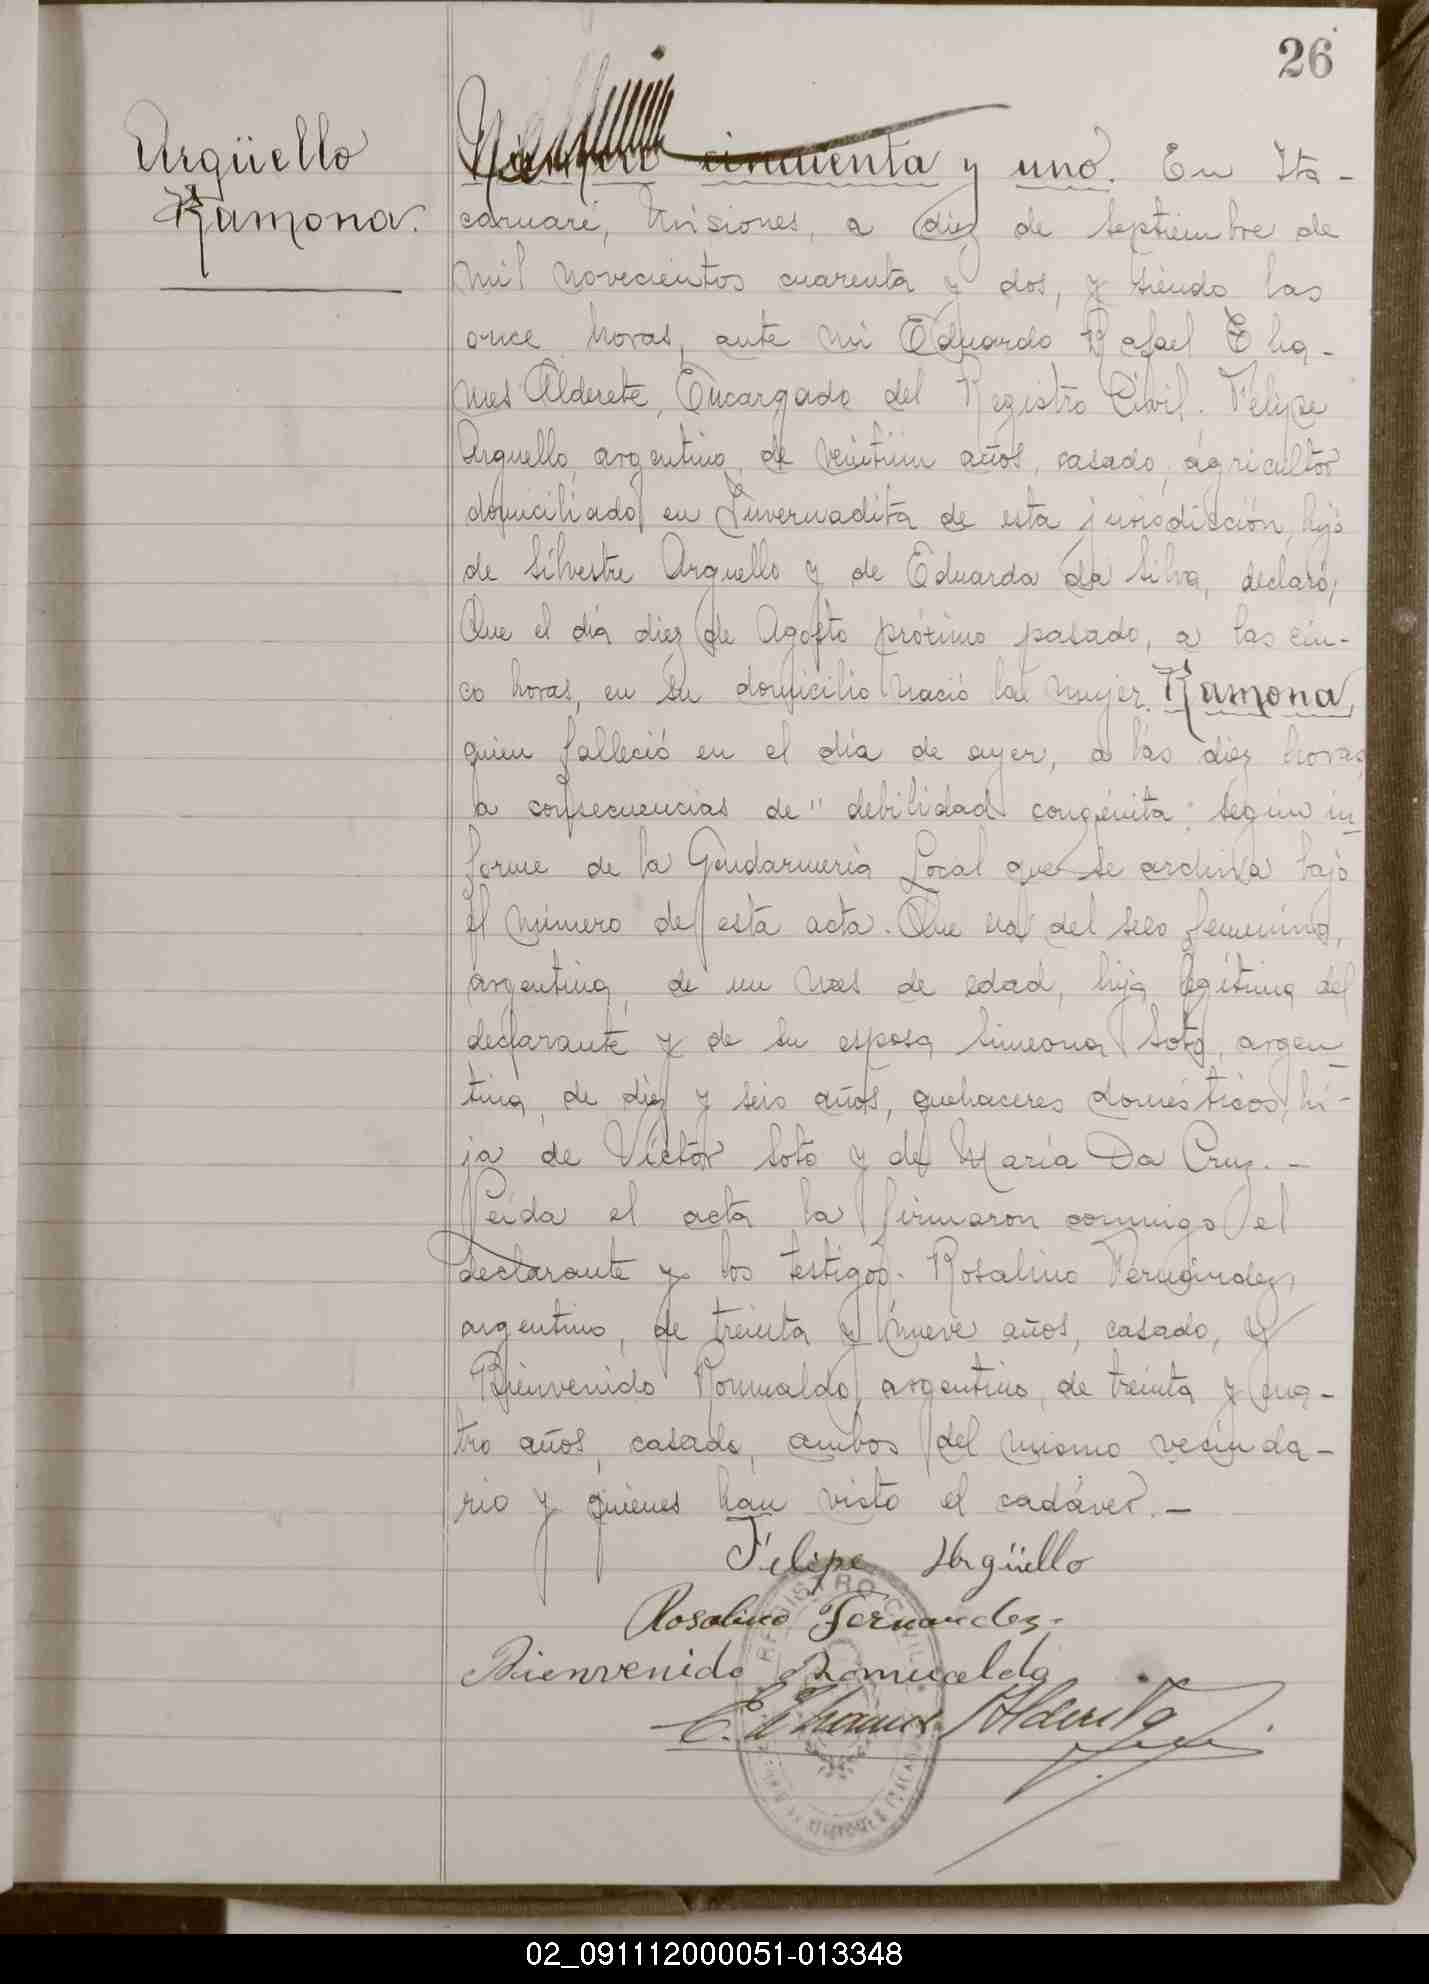 26
Argüello
Ramona.
Número cincuenta y uno. En Ita-
caruaré, Misiones, a diez de septiembre de
mil novecientos cuarenta y dos, y siendo las
once horas, ante mi Eduardo Rafael
Alderete, Encargado del Registro Civil. Felipe
Arguello, argentino, de veintiun años, casado, agricultor
domiciliado en Invernadita de esta jurisdicción, hijo
de Silvestre Arguello y de Eduarda da Silva, declaró,
Que el día diez de Agosto próximo pasado, a las cin-
co horas, en su domicilio nació la mujer Ramona,
quien falleció en el día de ayer, a las diez horas,
a consecuencias de "debilidad congénita" según in-
forme de la Gendarmería Local que se archiva bajo
el número de esta acta. Que era del sexo femenino,
argentina, de un mes de edad, hija legítima del
declarante y de su esposa Simeona Soto, argen-
tina, de diez y seis años, quehaceres domésticos, hi-
ja de Víctor Soto y de María Da Cruz. -
Leída el acta la firmaron conmigo el
declarante y los testigos. Rosalino Fernández,
argentino, de treinta y nueve años, casado, y
Bienvenido Romualdo, argentino, de treinta y cua-
tro años, casado, ambos del mismo vecinda-
rio y quienes han visto el cadáver. -
Felipe Argüello
Rosalino Fernandez.
Bienvenido Romualdo
REGISTRO CIVIL
02_091112000051-013348